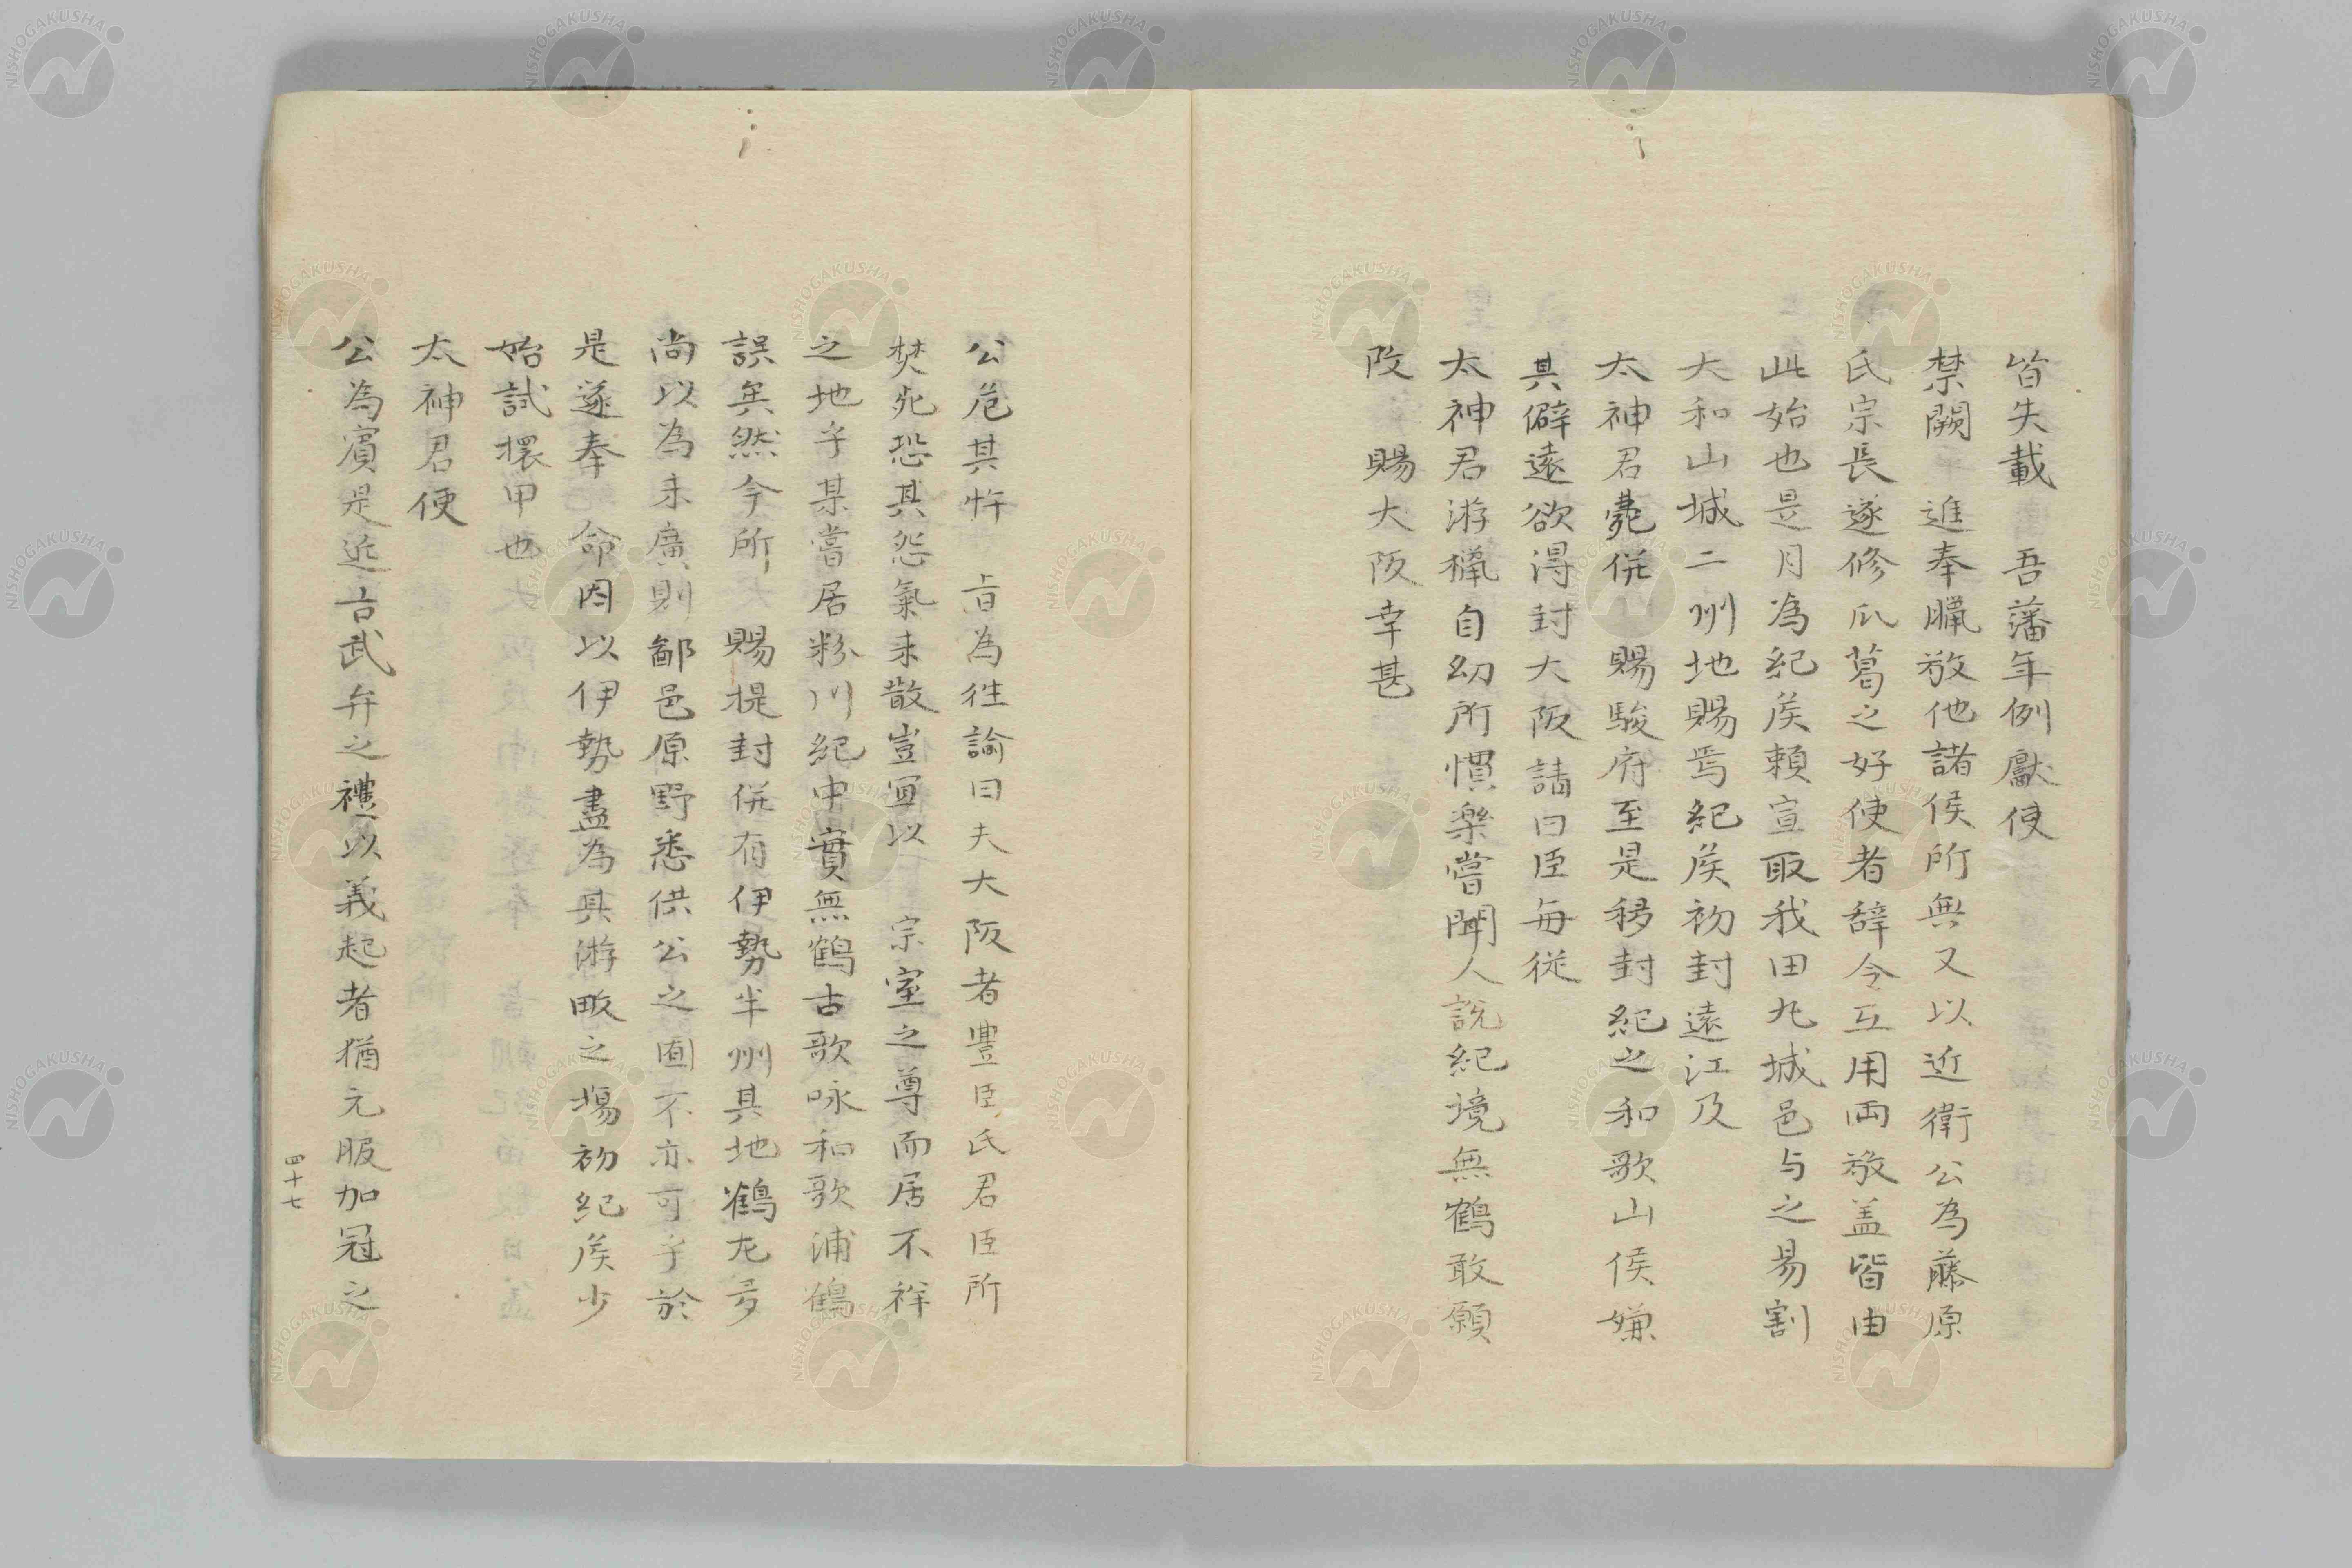 皆失載　吾藩年例獻使
禁闕　進奉臘敬他諸侯所無又以近衛公為藤原
氏宗長遂修瓜葛之好使者辞令互用両敬盖皆由
此始也是月為紀侯頼宣取我田丸城邑与之易割
大和山城二州地賜焉紀侯初封遠江及
太神君薨併　賜駿府至是移封紀之和歌山侯嫌
其僻遠欲得封大阪請曰臣毎従
太神君游獵自幼所慣楽嘗聞人説紀境無鶴敢願
改　賜大阪幸甚
公危其忤　旨為徃諭曰夫大阪者豊臣氏君臣所
焚死恐其怨氣未散豈冝以　宗室之尊而居不祥
之地乎某嘗居粉川紀中實無鶴古歌咏和歌浦鶴
誤矣然今所　賜提封併有伊勢半州其地鶴尤多
尚以為未廣則鄙邑原野悉供公之囿不亦可乎於
是遂奉　命因以伊勢盡為其游畋之場初紀侯少
始試擐甲也
太神君使
公為賓是近古武弁之禮以義起者猶元服加冠之
四十七
NISHOGAKUSHA